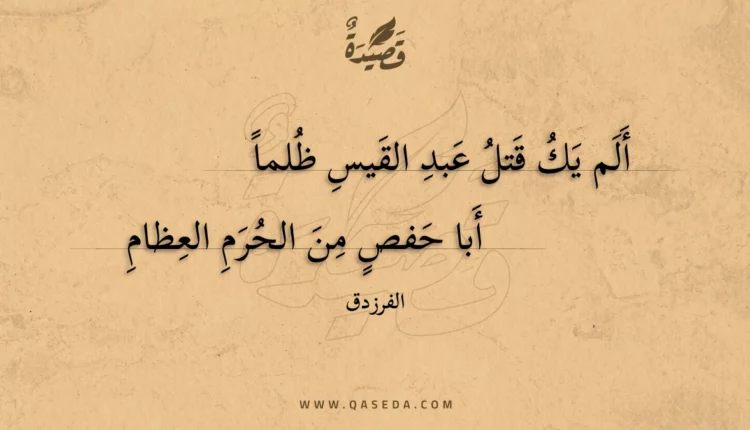 قَصِيدَةٌ
أَلَم يَكُ قَتلُ عَبدِ القَيسِ ظُلماً
أَبا حَفصٍ مِنَ الحُرَمِ العِظامِ
الفرزدق
WWW.QASEDA.COM